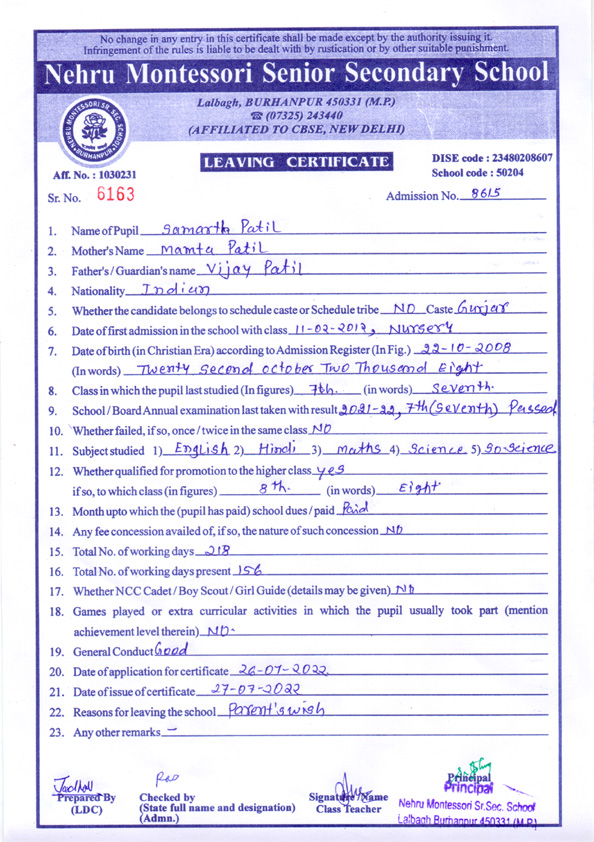 No change in any entry in this certificate shall be made except by the authority issuing it.
Infringement of the rules is liable to be dealt with by rustication or by other suitable punishment.
Nehru Montessori Senior Secondary School
Lalbagh, BURHANPUR 450331 (M.P.)
☎ (07325) 243440
(AFFILIATED TO CBSE, NEW DELHI)
NEHRU MONTESSORI SR. SEC. SCHOOL
BURHANPUR
LEAVING CERTIFICATE
DISE code : 23480208607
School code : 50204
Aff. No. : 1030231
Sr. No. 6163
Admission No. 8615
1. Name of Pupil Samarth Patil
2. Mother's Name Mamta Patil
3. Father's / Guardian's name Vijay Patil
4. Nationality Indian
5. Whether the candidate belongs to schedule caste or Schedule tribe NO Caste Gurjar
6. Date of first admission in the school with class 11-02-2013, Nursery
7. Date of birth (in Christian Era) according to Admission Register (In Fig.) 22-10-2008
(In words) Twenty Second October Two Thousand Eight
8. Class in which the pupil last studied (In figures) 7th. (in words) Seventh.
9. School / Board Annual examination last taken with result 2021-22, 7th (Seventh) Passed
10. Whether failed, if so, once / twice in the same class NO
11. Subject studied 1) English 2) Hindi 3) Maths 4) Science 5) So-Science
12. Whether qualified for promotion to the higher class yes
if so, to which class (in figures) 8th. (in words) Eight
13. Month upto which the (pupil has paid) school dues / paid Paid
14. Any fee concession availed of, if so, the nature of such concession NO
15. Total No. of working days 218
16. Total No. of working days present 156
17. Whether NCC Cadet / Boy Scout / Girl Guide (details may be given) NO
18. Games played or extra curricular activities in which the pupil usually took part (mention
achievement level therein) NO.
19. General Conduct Good
20. Date of application for certificate 26-07-2022
21. Date of issue of certificate 27-07-2022
22. Reasons for leaving the school Parent's wish
23. Any other remarks —
Prepared By
(LDC)
Rao
Checked by
(State full name and designation)
(Admn.)
Signature / Name
Class Teacher
Principal
Principal
Nehru Montessori Sr.Sec. School
Lalbagh Burhanpur 450331 (M.P.)